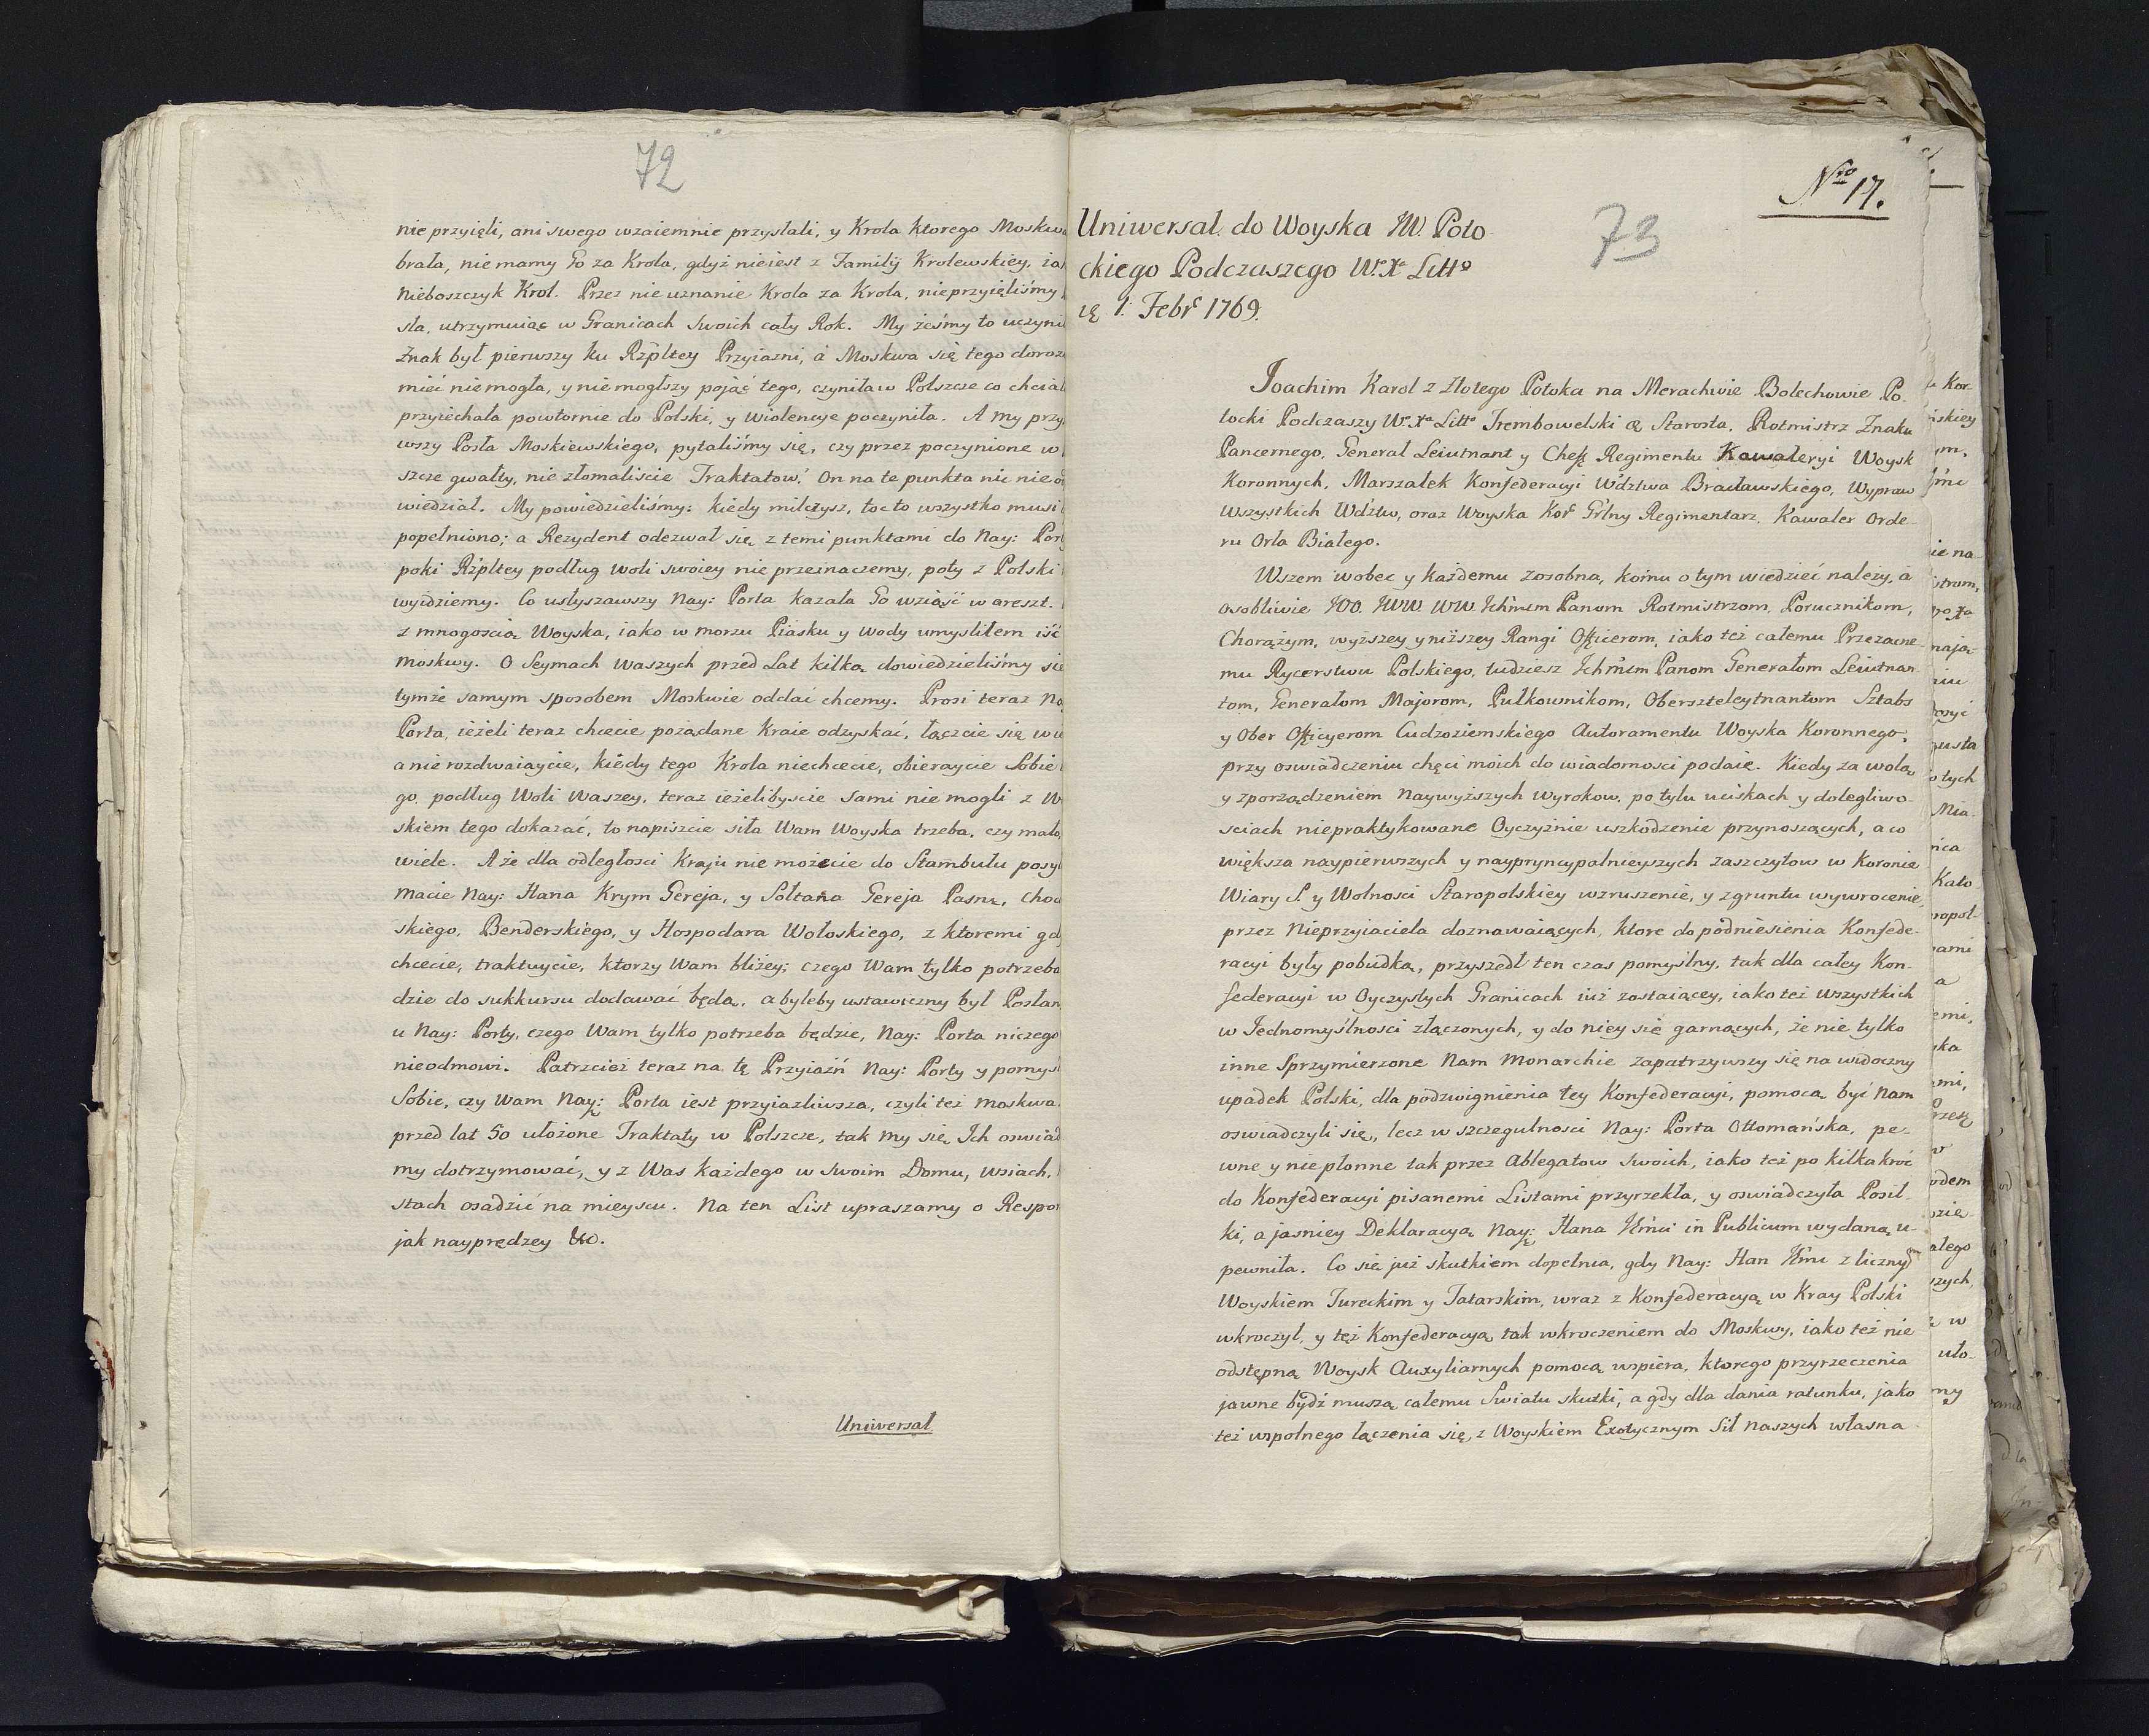 72
nie przyięli, ani swego wzaiemnie przysłali, y Krola ktorego Moskwa
brała, nie mamy Go za Krola, gdyż nieiest z Familij Krolewskiey, iak
Nieboszczyk Krol. Przez nie uznanie Krola za Krola, nieprzyięliśmy
sła, utrzymuiąc w Granicach swoich cały Rok. My żeśmy to uczynil
Znak był pierwszy ku Rzpltey Przyiazni, á Moskwa się tego doroz
mieć niemogła, y niemogłszy pojąć tego, czyniła w Polszcze co chciał
przyiechała powtornie do Polski, y wiolencye poczyniła. A my przy
wszy Posła Moskiewskiego, pytaliśmy się, czy przez poczynione w
szcze gwałty, nie złomaliscie Traktatow? On na te punkta nic nie o
wiedział. My powiedzieliśmy: kiedy milczysz, toc to wszystko musi
popełniono; a Rezydent odezwał się z temi punktami do Nay: Port
poki Rzpltey podług woli swoiey nie przeznaczemy, poty z Polski
wyidziemy. Co usłyszawszy Nay: Porta kazała Go wziąść w areszt.
z mnogoscią Woyska, iako w morzu Piasku y wody umysliłem iść
Moskwy. O Seymach waszych przed Lat kilką dowiedzieliśmy sie
tymże samym sposobem Moskwie oddać chcemy. Prosi teraz Na
Porta, ieżeli teraz chcecie pożądane Kraie odzyskać, łączcie się w
a nie rozdwaiaycie, kiedy tego Krola niechcecie, obieraycie Sobie
go podług Woli Waszey, teraz ieżelibyscie sami nie mogli z W
skiem tego dokazać, to napiszcie siła Wam Woyska trzeba, czy mało,
wiele. A że dla odległosci Kraju nie możecie do Stambułu posył
macie Nay: Hana Krym Gereja, y Sołtana Gereja Pasnę, Choc
skiego, Benderskiego, y Hospodara Wołoskiego, z ktoremi gd
chcecie, traktuycie, ktorzy Wam bliżey; czego Wam tylko potrzeba
dzie do sukkursu dodawać będą, a byleby ustawiczny był Posłan
u Nay: Porty, czego Wam tylko potrzeba będzie, Nay: Porta niczego
nieodmowi. Patrzcież teraz na tę Przyiaźń Nay: Porty y pomys
Sobie, czy Wam Nay: Porta iest przyiazliwsza, czyli też Moskwa.
przed lat 50 ułożone Traktaty w Polszcze, tak my się Ich oswiad
my dotrzymować, y z Was każdego w swoim Domu, wsiach,
stach osadzić na mieyscu. Na ten List upraszamy o Respon
jak nayprędzey &c.
Uniwersał
Nro 17.
73
Uniwersał do Woyska JW. Poto
ckiego Podczaszego W.Xa Litto
1. Febr 1769.
Joachim Karol z Złotego Potoka na Merachwie Bolechowie Po-
tocki Podczaszy W.Xa Litto Trembowelski &c Starosta, Rotmistrz Znaku
Pancernego, General Leiutnant y Cheff Regimentu Kawaleryi Woysk
Koronnych, Marszałek Konfederacyi Wdztwa Bracławskiego, Wypraw
wszystkich Wdztw, oraz Woyska Kor Grlny Regimentarz, Kawaler Orde-
ru Orła Białego.
Wszem wobec y każdemu zosobna, komu o tym wiedzieć należy, á
osobliwie JOO. JWW. WW. Ichmm Panom Rotmistrzom, Porucznikom,
Chorążym, wyższey y niższey Rangi Officerom, iako też całemu Przezacne-
mu Rycerstwu Polskiego, tudziesz Ichmm Panom Generałom Leiutnan
tom, Generałom Majorom, Pułkownikom, Obersztelejtnantom Sztabs
y Ober Officyerom Cudzoziemskiego Autoramentu Woyska Koronnego,
przy oswiadczeniu chęci moich do wiadomosci podaię. Kiedy za wolą
y zporządzeniem Naywyższych wyrokow, po tylu uciskach y dolegliwo-
sciach niepraktykowane Oyczyznie uszkodzenie przynoszących, a co
większa naypierwszych y naypryncypalnieyszych zaszczytow w Koronie
Wiary S. y Wolnosci Staropolskiey wzruszenie, y zgruntu wywrocenie,
przez Nieprzyiaciela doznawaiących, ktore do podniesienia Konfede-
racyi były pobudką, przyszedł ten czas pomyslny, tak dla całey Kon-
federacyi w Oyczystych Granicach iuż zostaiącey, iako też wszystkich
w Jednomyślnosci złączonych, y do niey się garnących, że nie tylko
inne Sprzymierzone Nam Monarchie zapatrzywszy się na widoczny
upadek Polski, dla podzwignienia tey Konfederacyi, pomocą być Nam
oswiadczyli się, lecz w szczegulnosci Nay: Porta Ottomańska, pe-
wne y niepłonne tak przez Ablegatow swoich, iako też po kilkakroć
do Konfederacyi pisanemi Listami przyrzekła, y oswiadczyła Posił-
ki, a jasniey Deklaracyą Nay: Hana Jmci in Publicum wydaną u-
pewniła. Co się już skutkiem dopełnia, gdy Nay: Han Jmc z licznym
Woyskiem Tureckim y Tatarskim, wraz z Konfederacyą w Kray Polski
wkroczył, y też Konfederacyą tak wkroczeniem do Moskwy, iako też nie
odstępną Woysk Auxyliarnych pomocą wspiera, ktorego przyrzeczenia
jawne bydź muszą całemu Swiatu skutki, a gdy dla dania ratunku, jako
też wspolnego łączenia się, z Woyskiem Exotycznym Sił naszych własna